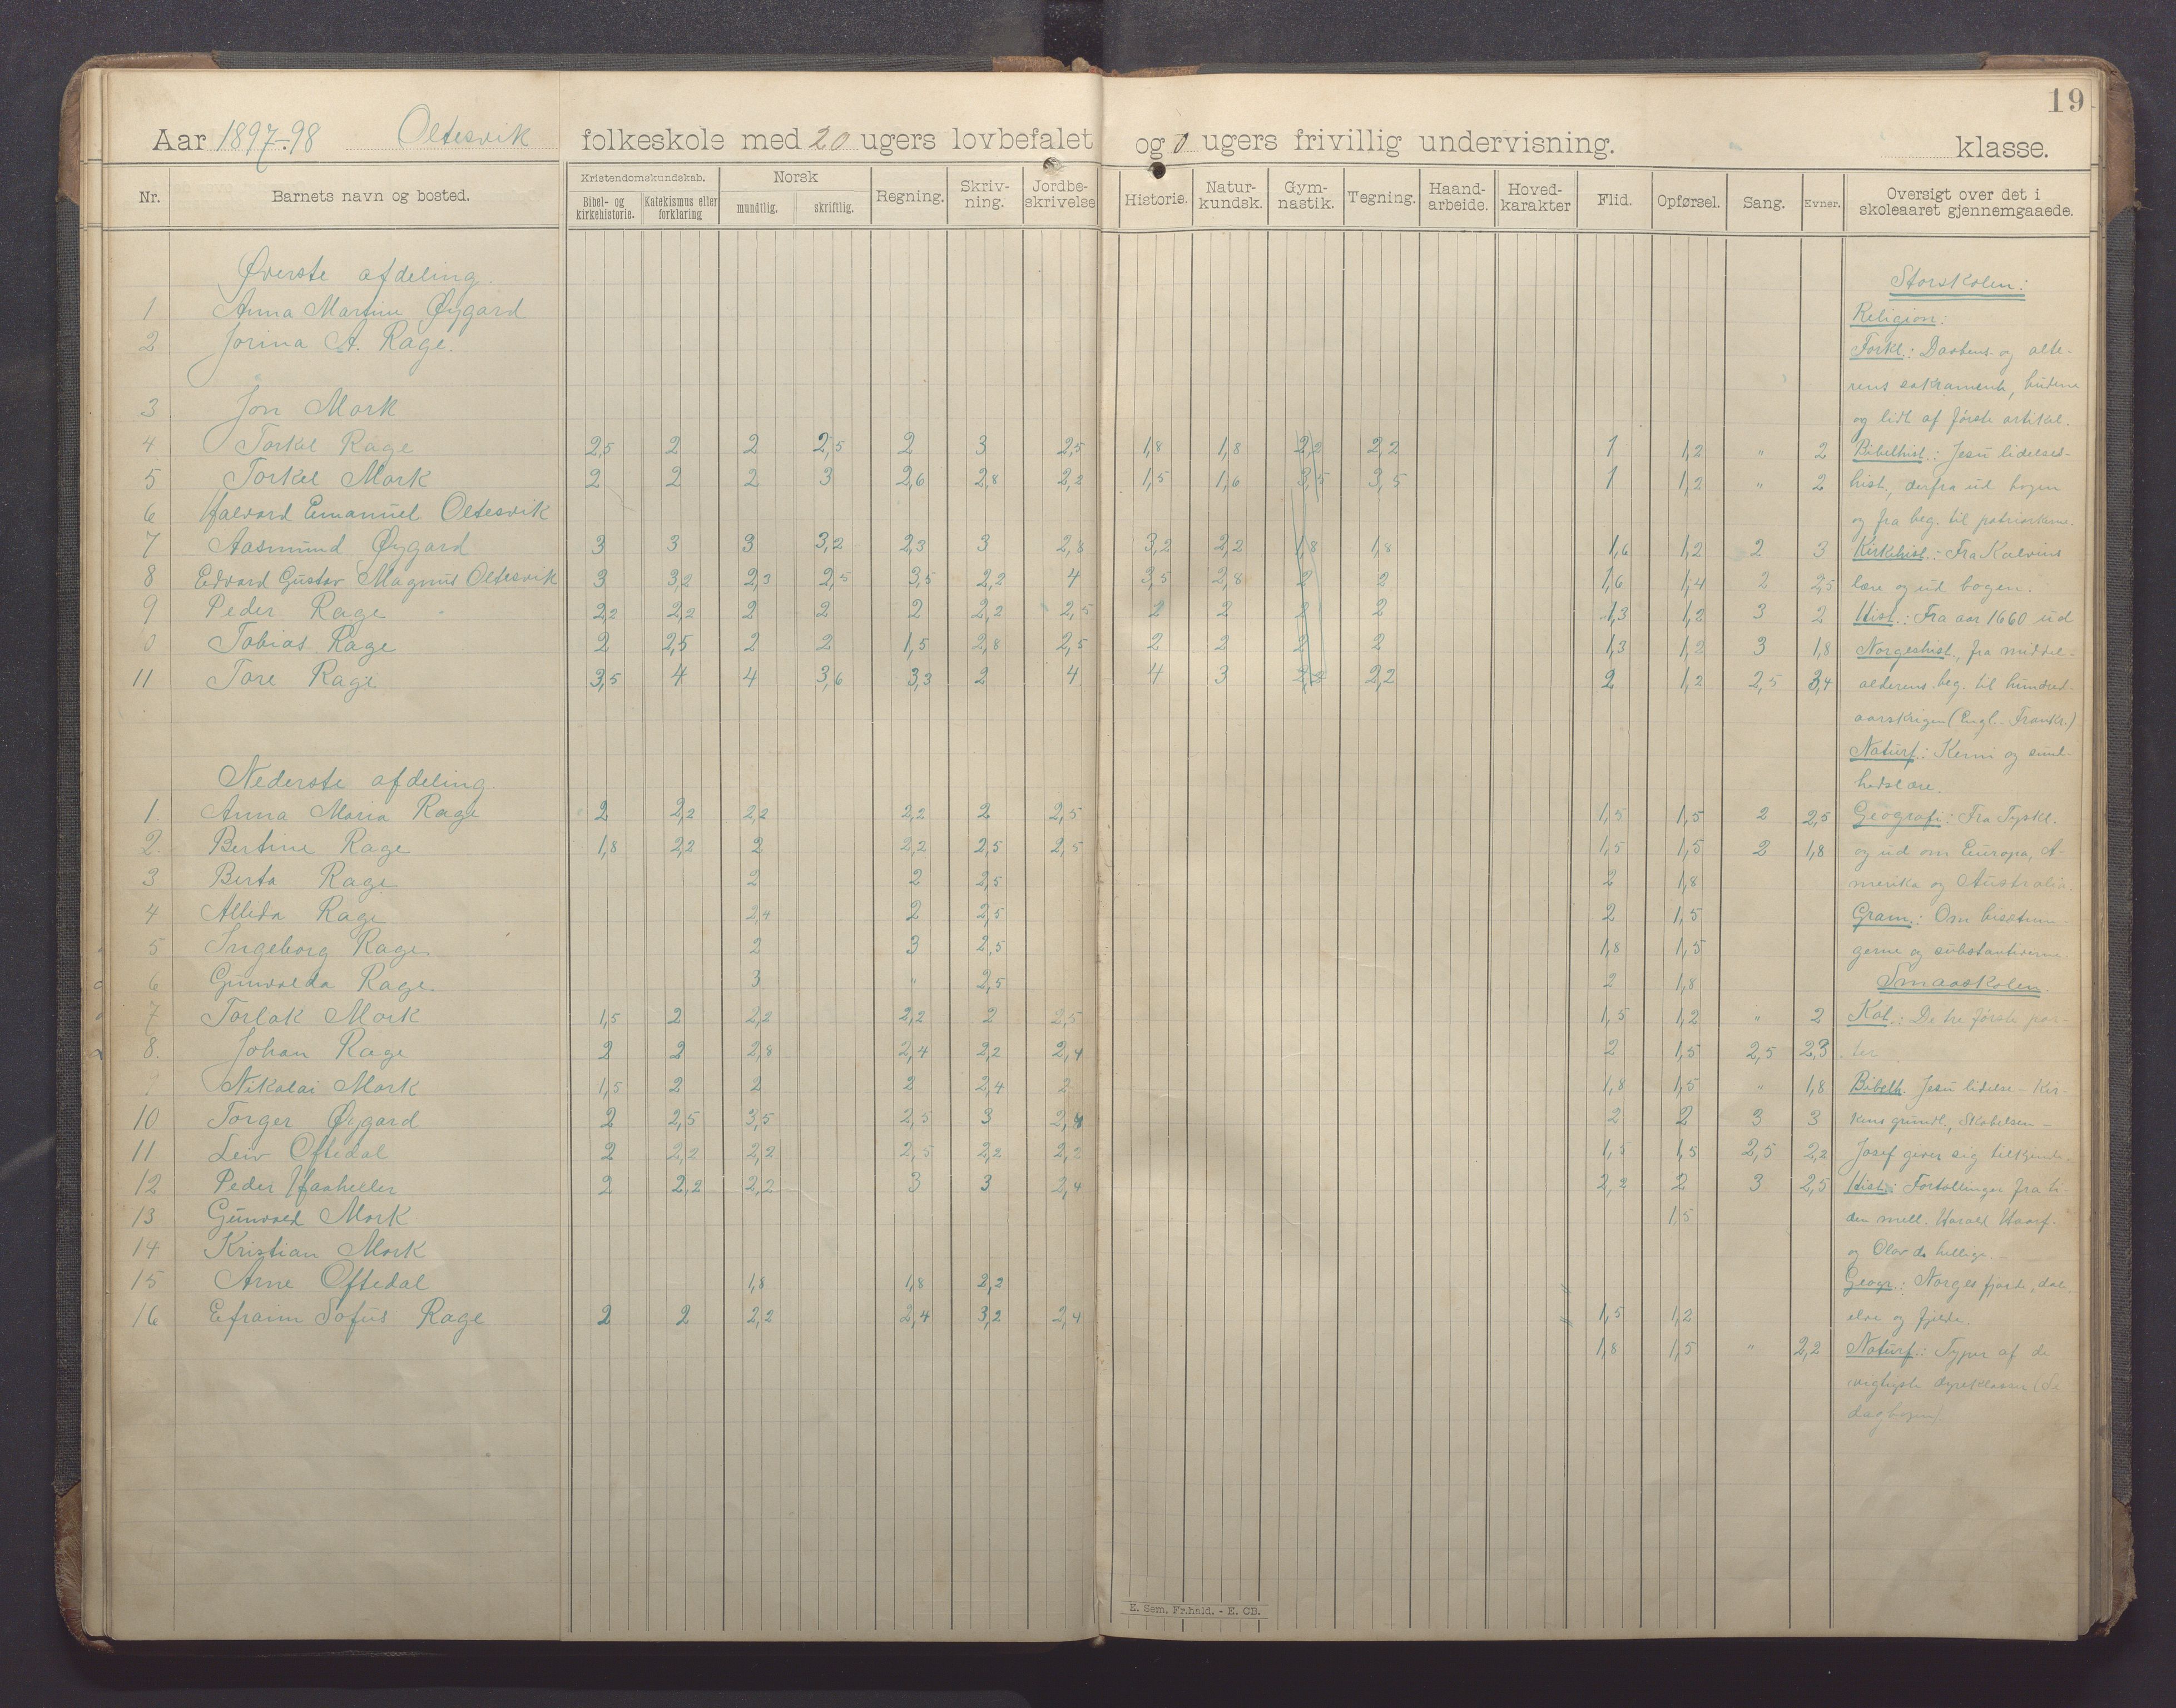 19
Aar 1897-98 Oltesvik folkeskole med 20 ugers lovbefalet og 0 ugers frivillig undervisning. klasse.
Nr. Barnets navn og bosted. Kristendomskundskab. Bibel- og kirkehistorie. Katekismus eller forklaring Norsk mundtlig. skriftlig. Regning. Skriv-ning. Jordbe-skrivelse Historie. Natur-kundsk. Gym-nastik. Tegning. Haand-arbeide. Hoved-karakter Flid. Opførsel. Sang. Evner. Oversigt over det i skoleaaret gjennemgaaede.
Øverste afdeling.
1 Anna Martine Øygard
2 Jorina A. Rage.
3 Jon Mork
4 Torkel Rage 2,5 2 2 2,5 2 3 2,5 1,8 1,8 2,2 2,2 1 1,2 " 2
5 Torkel Mork 2 2 2 3 2,6 2,8 2,2 1,5 1,6 3,5 3,5 1 1,2 " 2
6 Halvard Emanuel Oltesvik
7 Aasmund Øygard 3 3 3 3,2 2,3 3 2,8 3,2 2,2 1,8 1,8 1,6 1,2 2 3
8 Edvard Gustav Magnus Oltesvik 3 3,2 2,3 2,5 3,5 2,2 4 3,5 2,8 2 2 1,6 1,4 2 2,5
9 Peder Rage 2,2 2,2 2 2 2 2,2 2,5 2 2 2 2 1,3 1,2 3 2
0 Tobias Rage 2 2,5 2 2 1,5 2,8 2,5 2 2 2 2 1,3 1,2 3 1,8
11 Tore Rage 3,5 4 4 3,6 3,3 2 4 4 3 2,2 2,2 2 1,2 2,5 3,4
Nederste afdeling.
1. Anna Maria Rage 2 2,2 2,2 2,2 2 2,5 1,5 1,5 2 2,5
2. Bertine Rage 1,8 2,2 2 2,2 2,5 2,5 1,5 1,5 2 1,8
3 Berta Rage 2 2 2,5 2 1,8
4 Allida Rage 2,4 2 2,5 2 1,5
5 Ingeborg Rage 2 3 2,5 1,8 1,5
6 Gunvalda Rage 3 " 2,5 2 1,8
7 Torlak Mork 1,5 2 2,2 2,2 2 2,5 1,5 1,2 " 2
8. Johan Rage 2 2 2,8 2,4 2,2 2,4 2 1,5 2,5 2,3
Nikolai Mork 1,5 2 2 2 2,4 2 1,8 1,5 " 1,8
10 Torger Øygard 2 2,5 3,5 2,5 3 2,4 2 2 3 3
11 Leiv Oftedal 2 2,2 2,2 2,5 2,2 2,2 1,5 1,5 2,5 2,2
12 Peder Haaheller 2 2,2 2,2 3 3 2,4 2,2 2 3 2,5
13 Gunvald Mork 1,5
14 Kristian Mork
15 Arne Oftedal 1,8 1,8 2,2
16 Efraim Sofus Rage 2 2 2,2 2,4 3,2 2,4 1,5 1,2
1,8 1,5 " 2,2
Storskolen:
Religion:
Forkl.: Daabens og alte-
rens sakramente, budene
og lidt af første artikel.
Bibelhist.: Jesu lidelses-
hist., derfra ud bogen
og fra beg. til patriarkerne.
Kirkehist.: Fra Kalvins
lære og ud bogen.
Hist.: Fra aar 1660 ud
Norgeshist., fra middel-
alderens beg. til hundred-
aarskrigen (Engl.-Frankr.)
Naturf.: Kemi og sund-
hedslære.
Geografi: Fra Tyskl.
og ud om Europa, A-
merika og Australia.
Gram.: Om bisætnin-
gerne og substantiverne
Smaaskolen.
Kat.: De tre første par-
ter
Bibelh. Jesu lidelse - Kir-
kens grundl., Skabelsen -
Josef giver sig tilkjende.
Hist.: Fortællinger fra ti-
den mell. Harald Haarf.
og Olav d. hellige.
Geogr.: Norges fjorde, dale
elve og fjelde.
Naturf.: Typer af de
vigtigste dyreklasser (se
dagbogen)
E. Sem. Fr.hald. - E. CB.